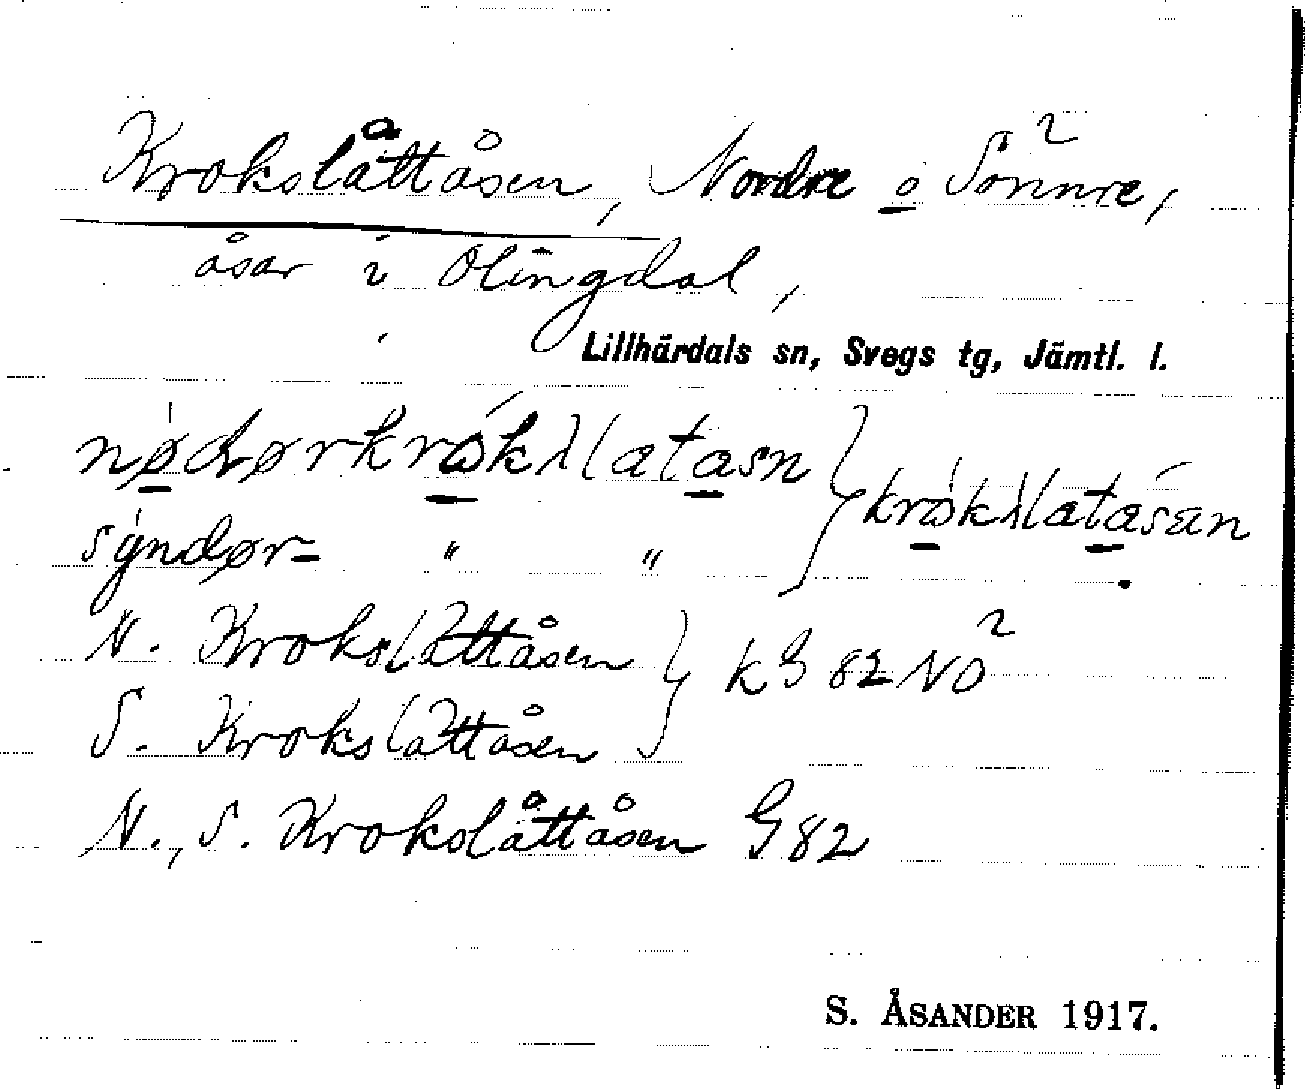 Krokslåttåsen, Nordre o Sönnre,
åsar i Olingdal,
Lillhärdals sn, Svegs tg, Jämtl. l.
nødørkråkλlatasn } kråkλlatasan
sýndør- " "
N. Krokslåttåsen } kG 82 NO
S. Krokslåttåsen
N., S. Krokslåttåsen G 82
S. ÅSANDER 1917.